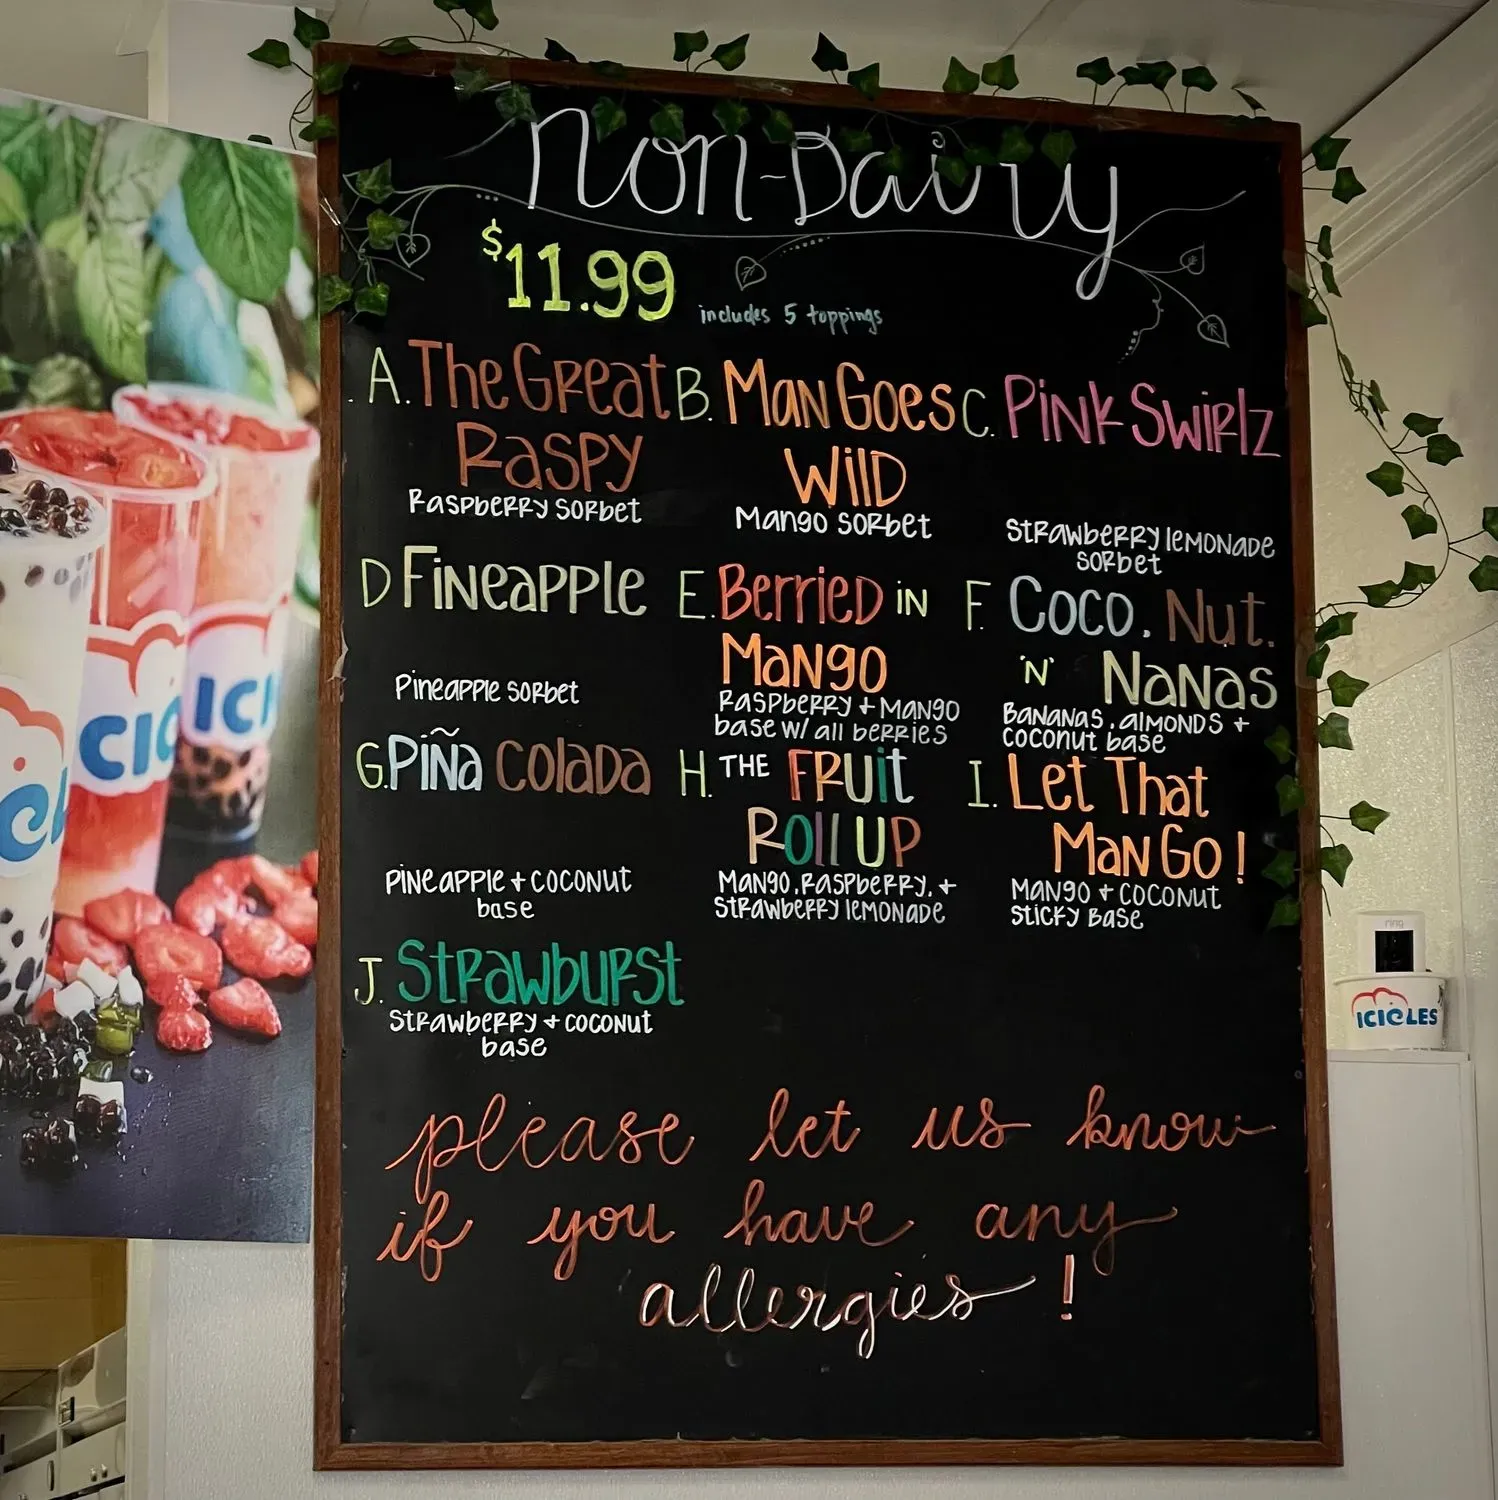 Non-Dairy
$11.99 includes 5 toppings
A. The Great
Raspy
Raspberry sorbet
B. Man Goes
Wild
Mango sorbet
C. Pink Swirlz
Strawberry lemonade
sorbet
D Fineapple
Pineapple sorbet
E. Berried in
Mango
Raspberry + Mango
base w/ all berries
F. Coco. Nut.
'N' Nanas
Bananas, almonds +
coconut base
G. Piña Colada
Pineapple + coconut
base
H. The Fruit
Roll Up
Mango, Raspberry, +
Strawberry lemonade
I. Let That
Man Go!
Mango + coconut
sticky base
J. Strawburst
Strawberry + coconut
base
please let us know
if you have any
allergies!
ICI
CIC
ring
ICICLES